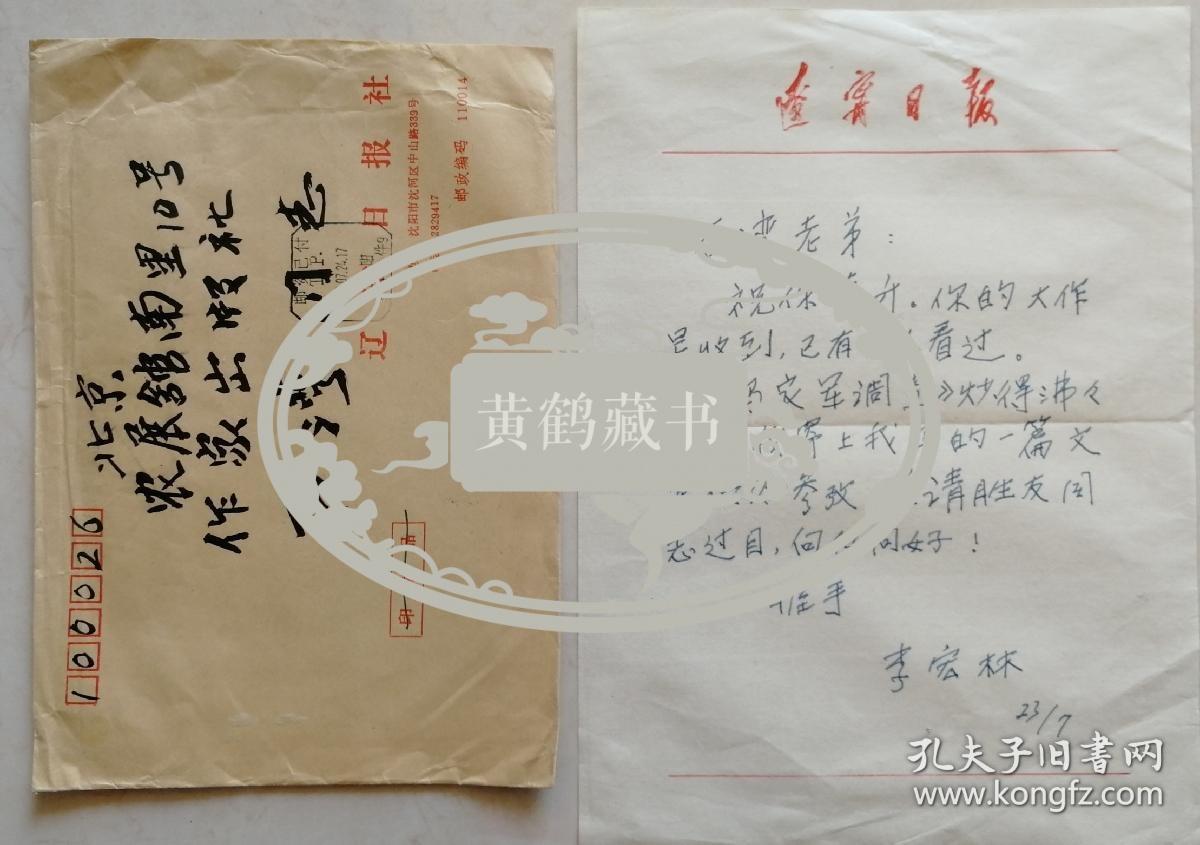 100026
北京
农展馆南里10号
作家出版社
湾
志
辽宁日报社
沈阳市沈河区中山路339号
2829417
邮政编码 110014
07.24.17
印 品
辽宁日报
湾老弟：
祝你 升。你的大作
已收到，已有 看过。
家军调 》炒得沸々
上我 的一篇文
参考 请胜友同
志过目，向 问好！
握手
李宏林
23/7
黄鹤藏书
孔夫子旧书网
www.kongfz.com